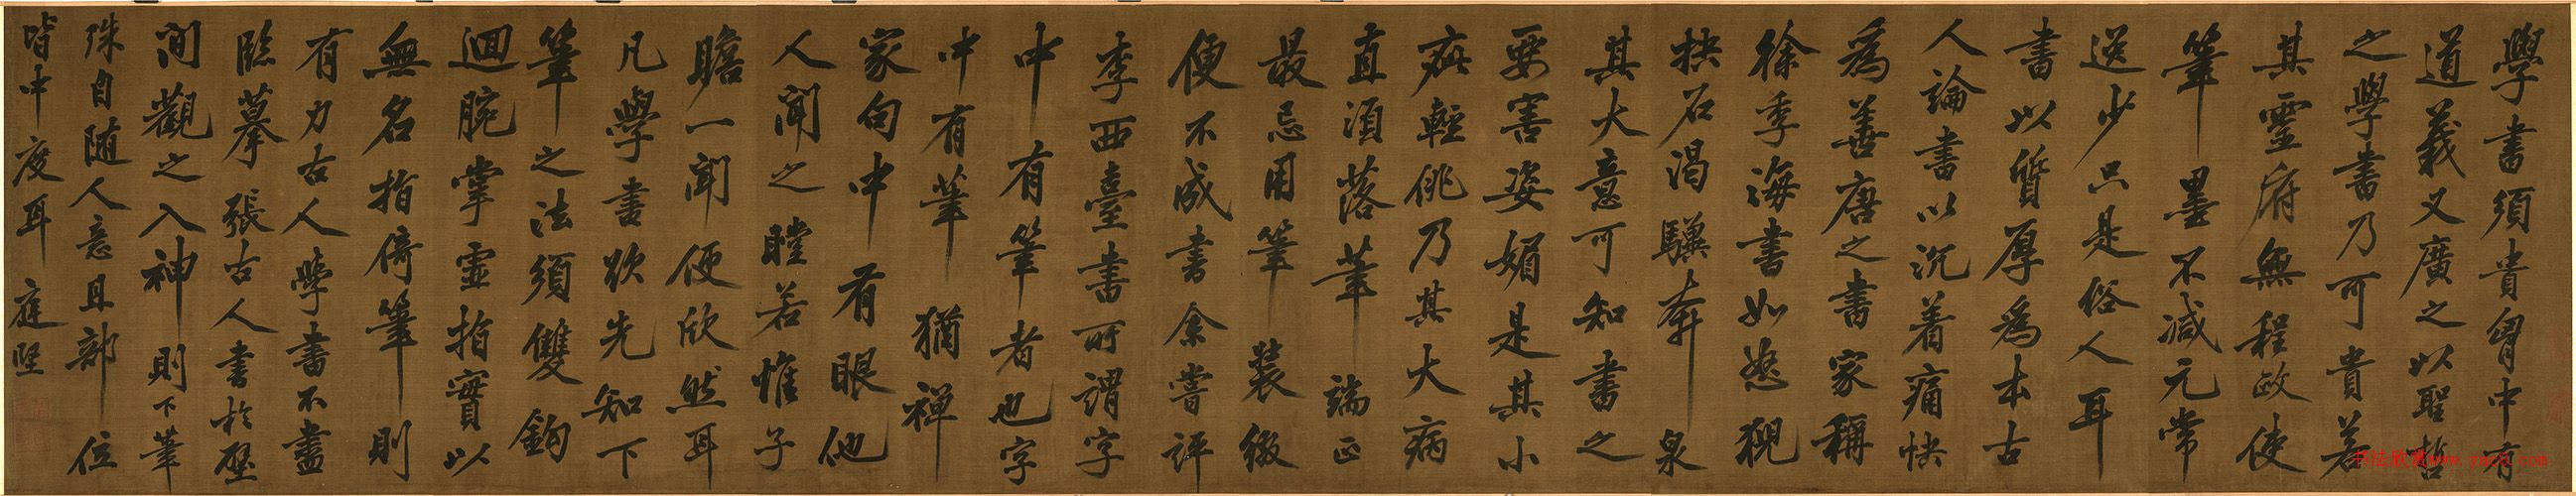 學書須貴胷中有
道義又廣之以聖哲
之學書乃可貴若
其靈府無程政使
筆墨不減元常
逸少只是俗人耳
書以質厚為本古
人論書以沉着痛快
為善唐之書家稱
徐季海書如怒猊
抉石渴驥奔泉
其大意可知書之
要害姿媚是其小
疵輕佻乃其大病
直須落筆端正
最忌用筆裝綴
便不成書余嘗評
李西臺書所謂字
中有筆者也字
中有筆猶禪
家句中有眼他
人聞之瞠若惟子
瞻一聞便欣然耳
凡學書欲先知下
筆之法須雙鉤
迴腕掌虛指實以
無名指倚筆則
有力古人學書不盡
臨摹張古人書於壁
間觀之入神則下筆
殊自隨人意且部位
皆中度耳 庭堅
书法欣赏www.yac8.com